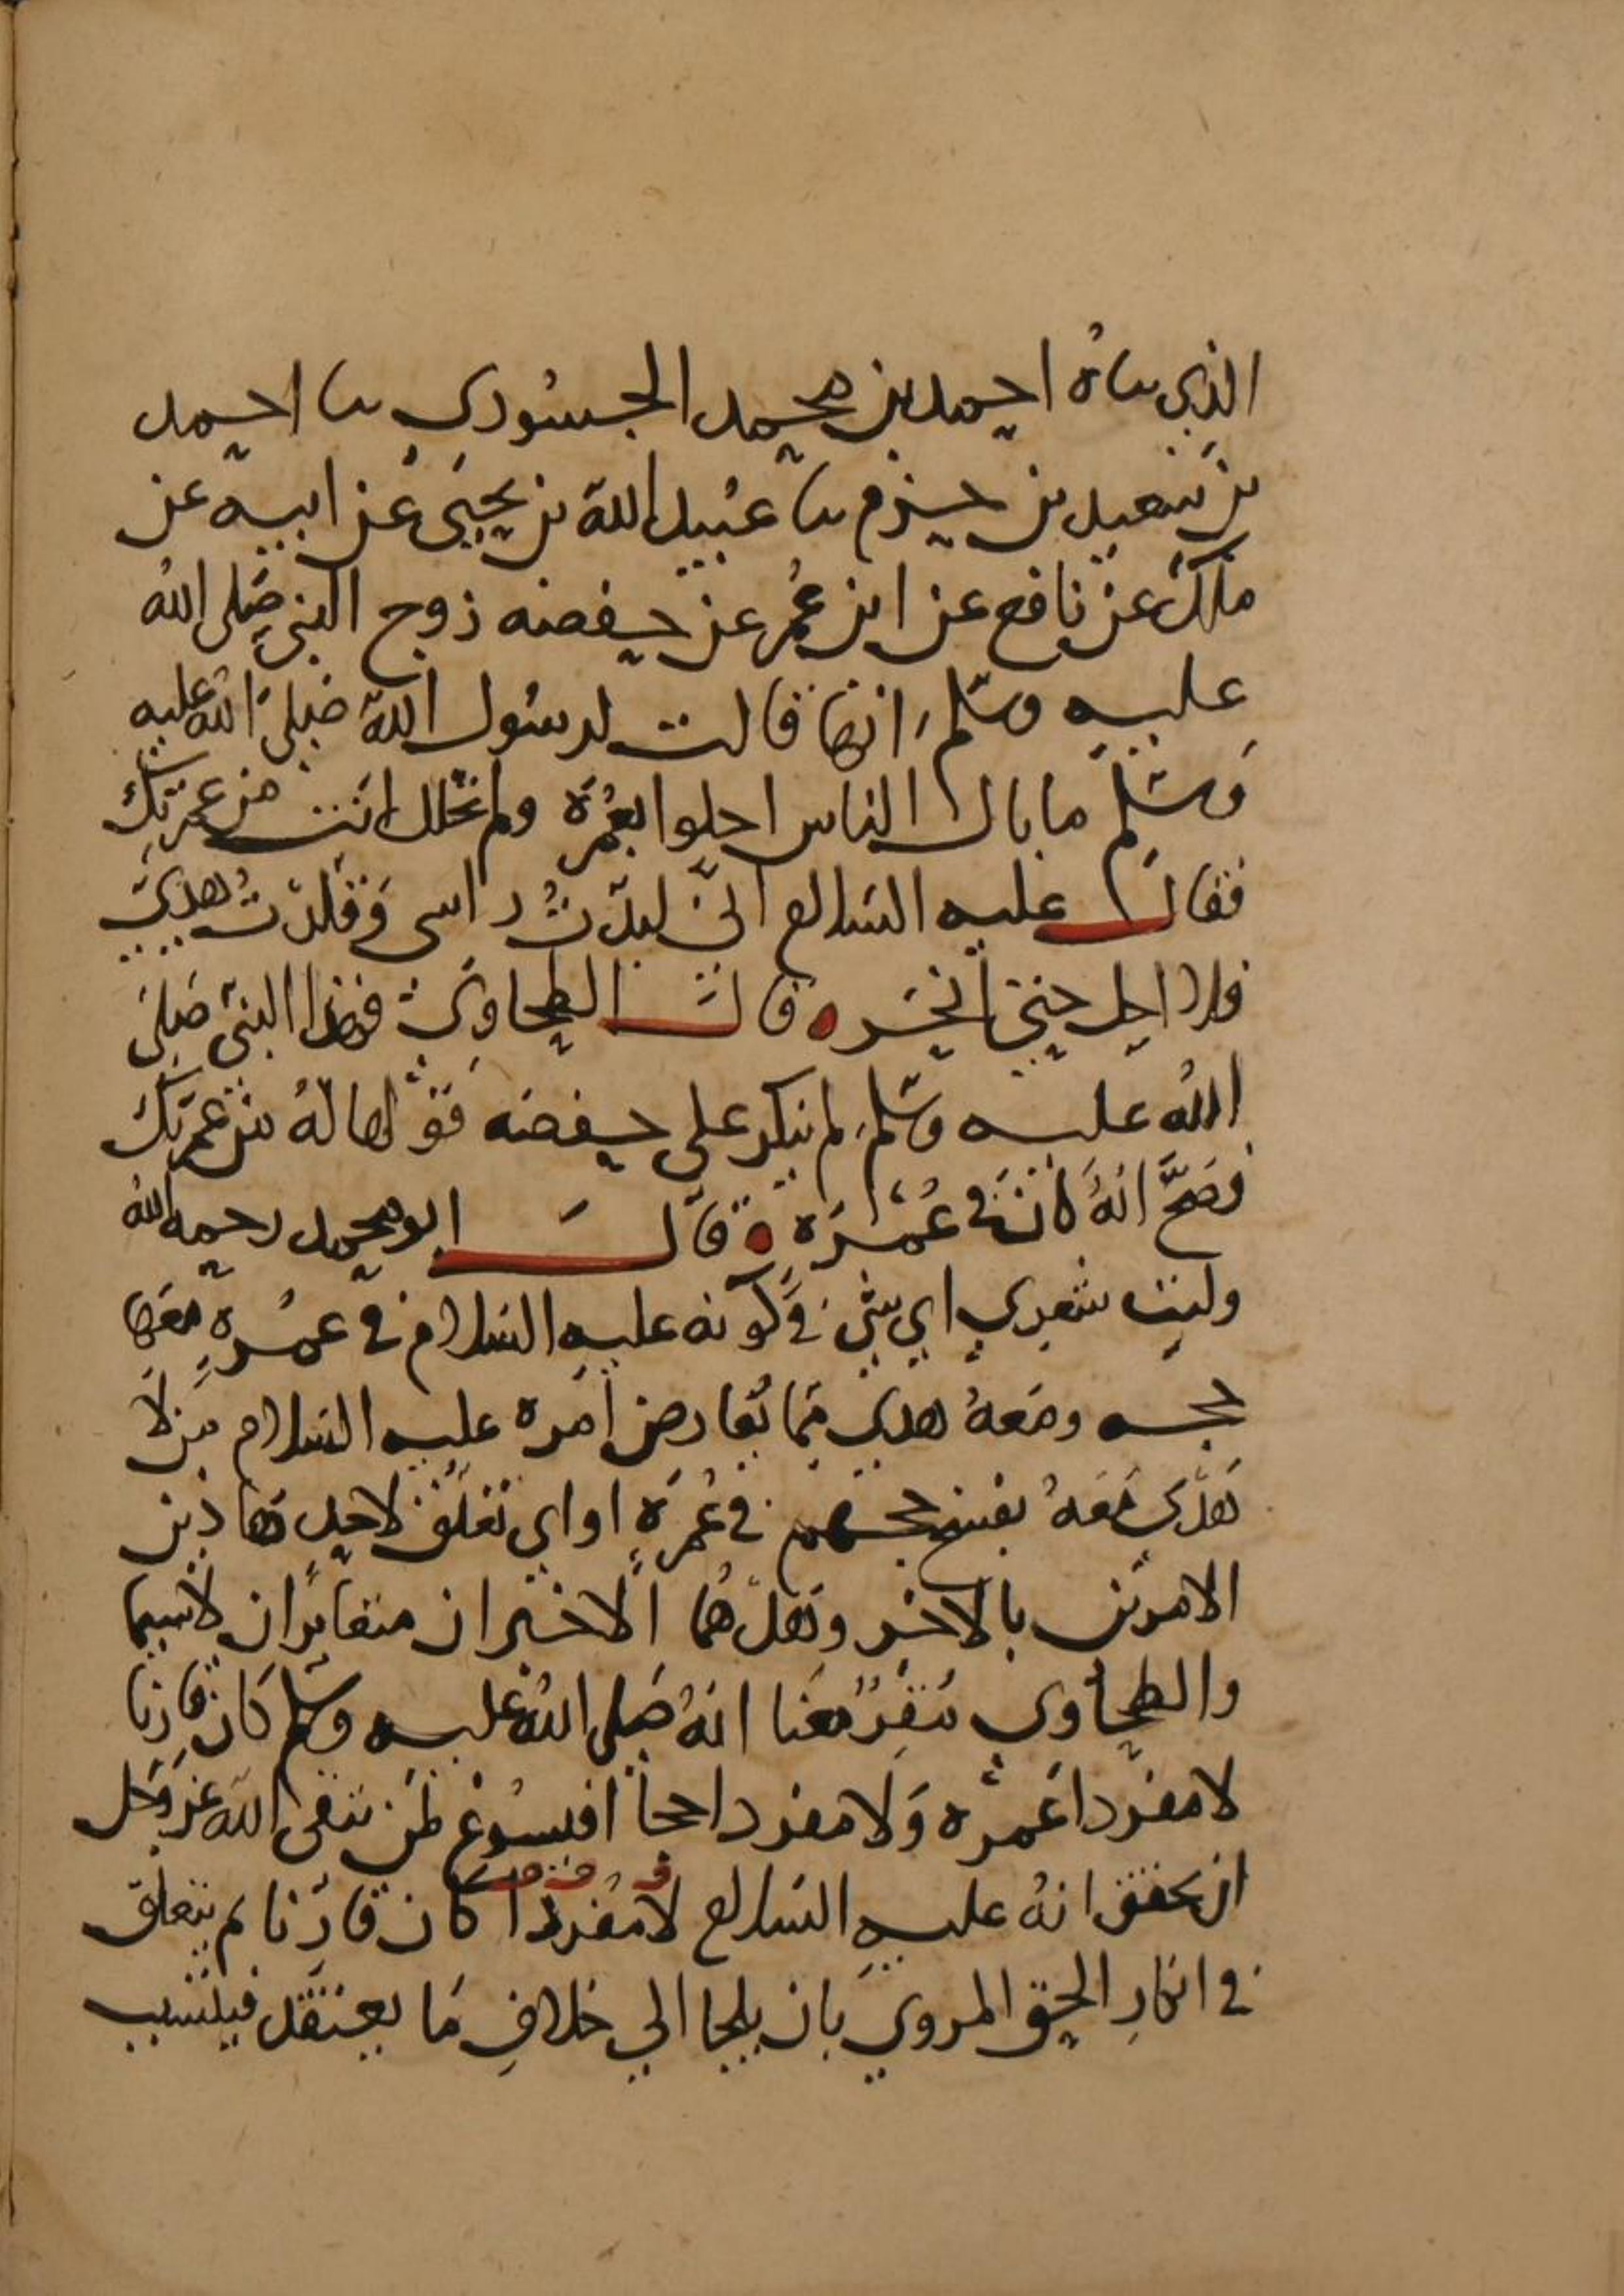 الذي ثناهُ احمد بن محمد الجسوري ثنا احمد
بن سعيد بن حزم ثنا عبيد اللهِ بن يحيى عن ابيه عن
ملك عن نافع عن ابن عمر عن حفصه زوج النبي صلى اللهُ
عليهِ وسلم انها قالت لرسُول اللهِ صلى اللهُ عليه
وسلم ما بال الناس احلوا بعُمرَة ولم تحلل انت من عمرتك
فقال عليه السلام انّي لبدّتُ راسى وَقَلدْتُ هديىَ
فلا احل حتى انحر ه قال الطحاوي فهذا النبي صلى
اللهُ عليه وسلم لم ينكر على حفصه قولها لهُ من عمرتك
فصَحَّ انهُ كانَ في عُمْرَه ه قال ابو محمد رحمه الله
وليت شعري اي شي في كونه عليه السلام في عمرهٍ معَها
حجه ومَعهُ هدي مما يُعارض اَمره عليه السلام من لا
هَدْيَ مَعَهُ بفسخ حجهم في عُمرَةٍ او اي تعلق لاحد هاذين
الامرين بالاخر وهل هُما الا خبران متغايران لاسيما
والطحاوي يُقِرّ معنا انهُ صلى اللهُ عليه وسلم كان قارنا
لا مفردا عمره وَلا مفردا حجا افيسوغ لمن يتقي الله عز وجل
ان يحقق انهُ عليهِ السلام لا مُفردا كان قارنا ثم يتعلق
في انكارِ الحق المروي بان يلجا الي خلافِ مَا يعتقد فينسب